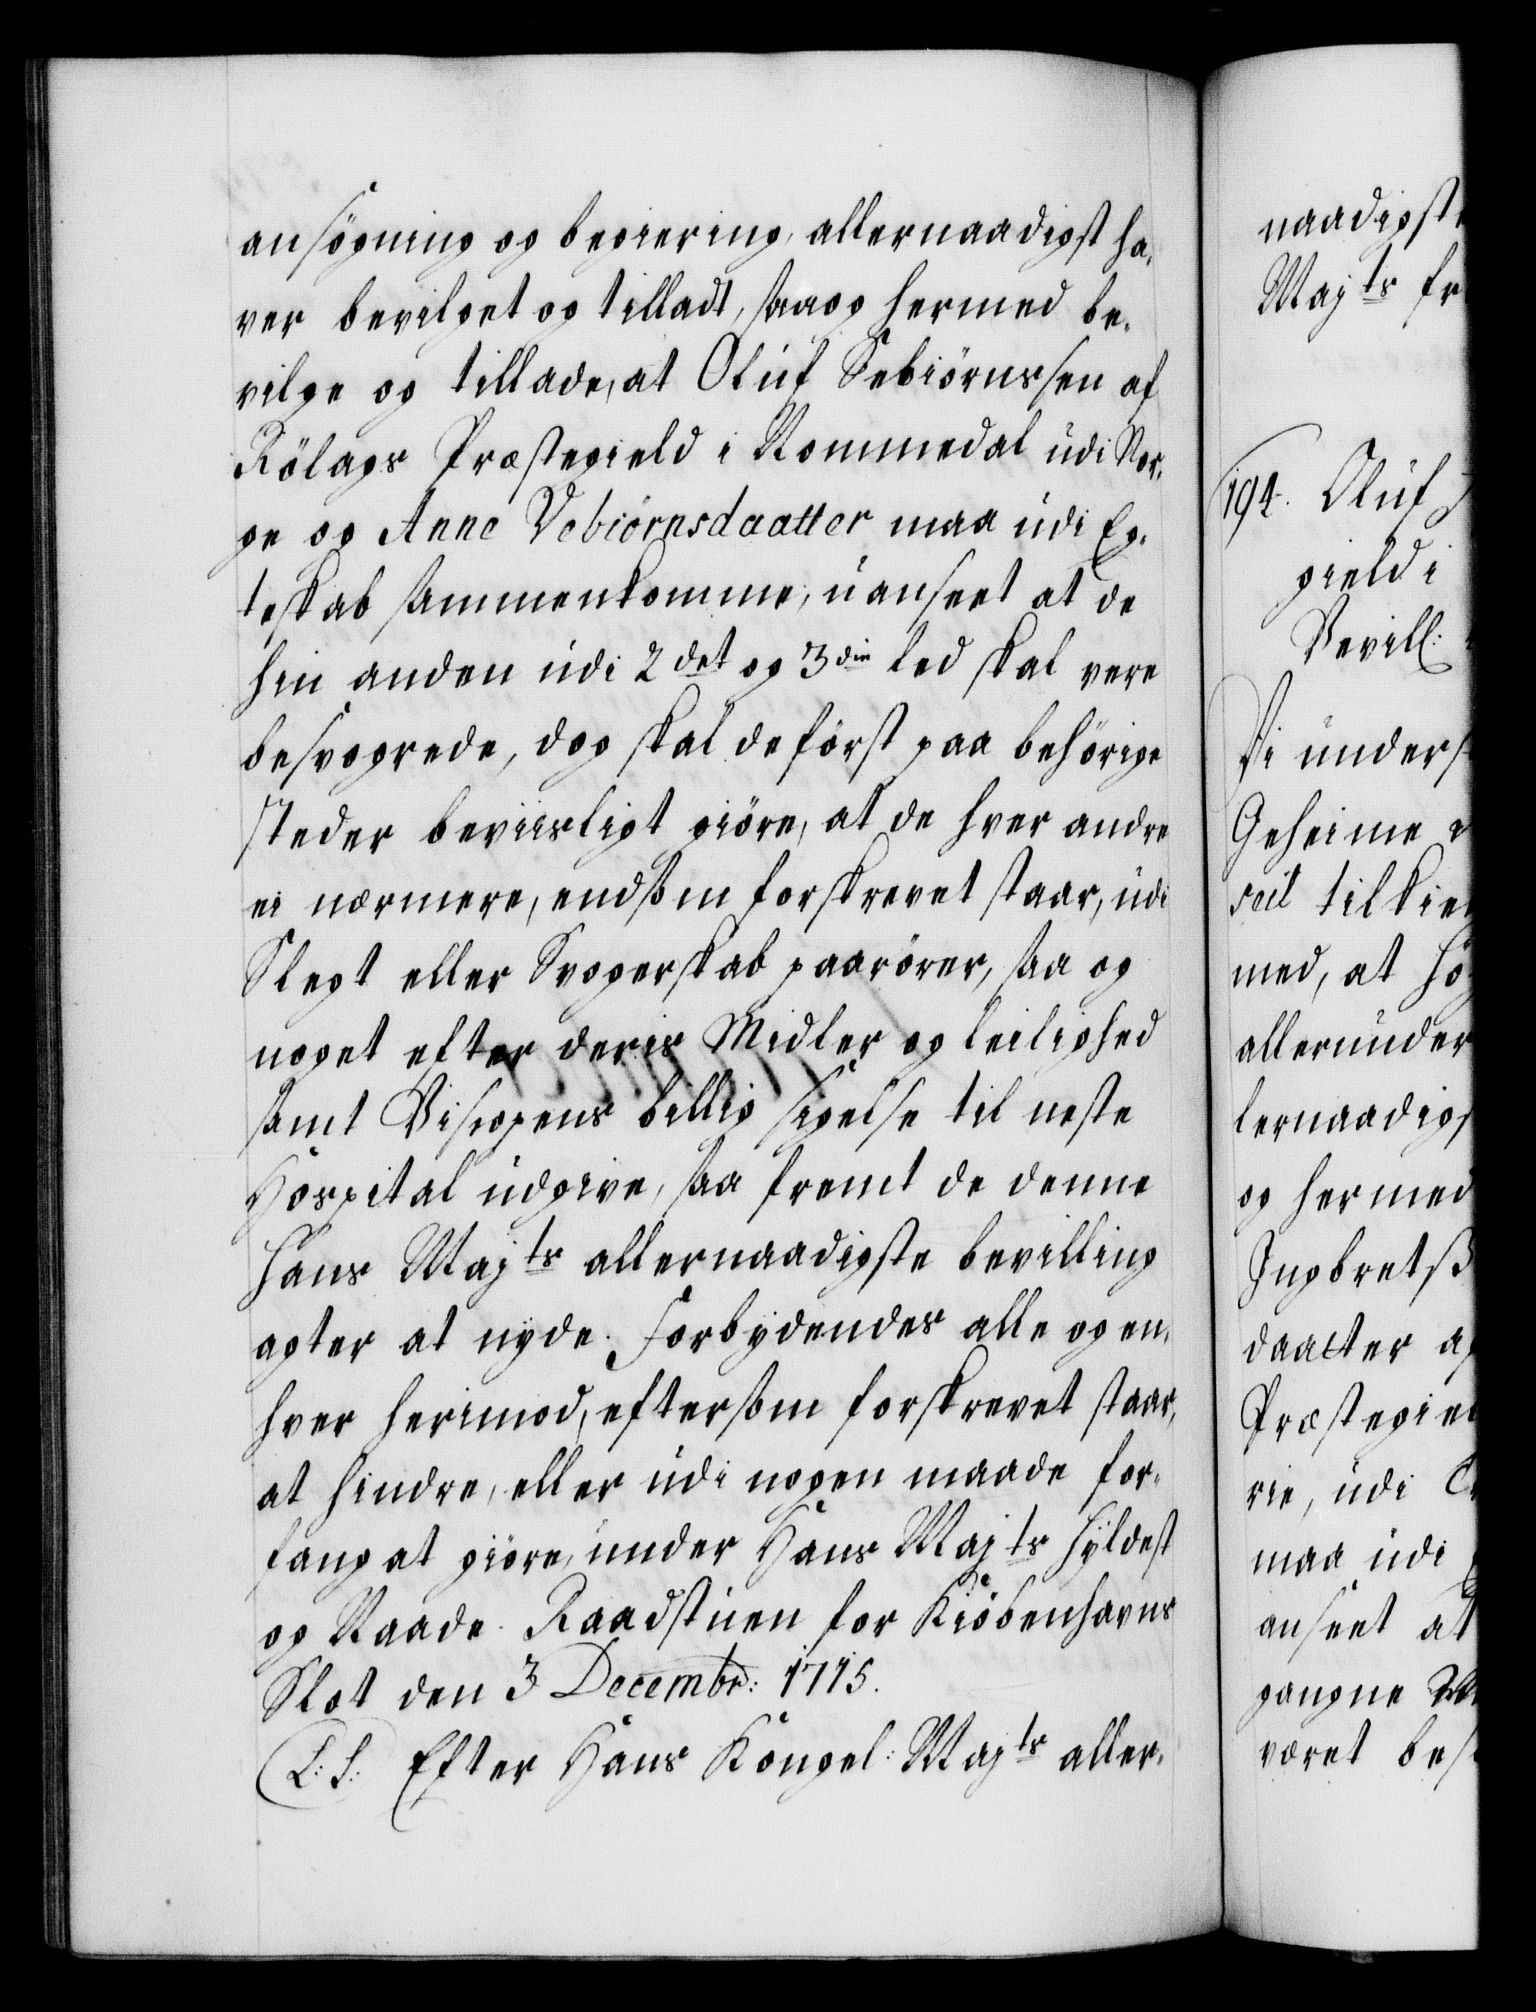 ansøgning og begiering, allernaadigst ha,
ver bevilget og tilladt, saa og hermed be,
vilge og tillade, at Oluf Sebiörnssen af
Rölags Præstegield i Rommedal udi Nor,
ge og Anne Vebiörnsdaatter maa udi Eg,
teskab sammenkomme, uanseet at de
hin anden udi 2det og 3die led skal vere
besvogrede, dog skal de först paa behörige
steder beviisligt giöre, at de hver andre
ei nærmere, end som forskrevet staar, udi
Slegt eller Svogerskab paarörer, saa og
noget efter deris Midler og leilighed
samt Biscopens billig sigelse til neste
Hospital udgive, saa fremt de denne
Hans Majts allernaadigste bevilling
agter at nyde. Forbydendes alle og en,
hver herimod, eftersom forskrevet staar,
at hindre, eller udi nogen maade for,
fang at giöre, under Hans Majts Hyldest
og Naade. Raadstuen for Kiöbenhavns
Slot den 3 Decembr: 1715.
L: S: Efter Hans Kongel: Majts aller,
naadigst
Majts fr
194. Oluf
gield i
Bevill:
Vi unders
Geheime
seil tilkie
med, at hö
allerunder
lernaadigs
og hermed
Ingbretß
daatter af
Præstegiel
rie, udi
maa udi
anseet at
gangne
været bes